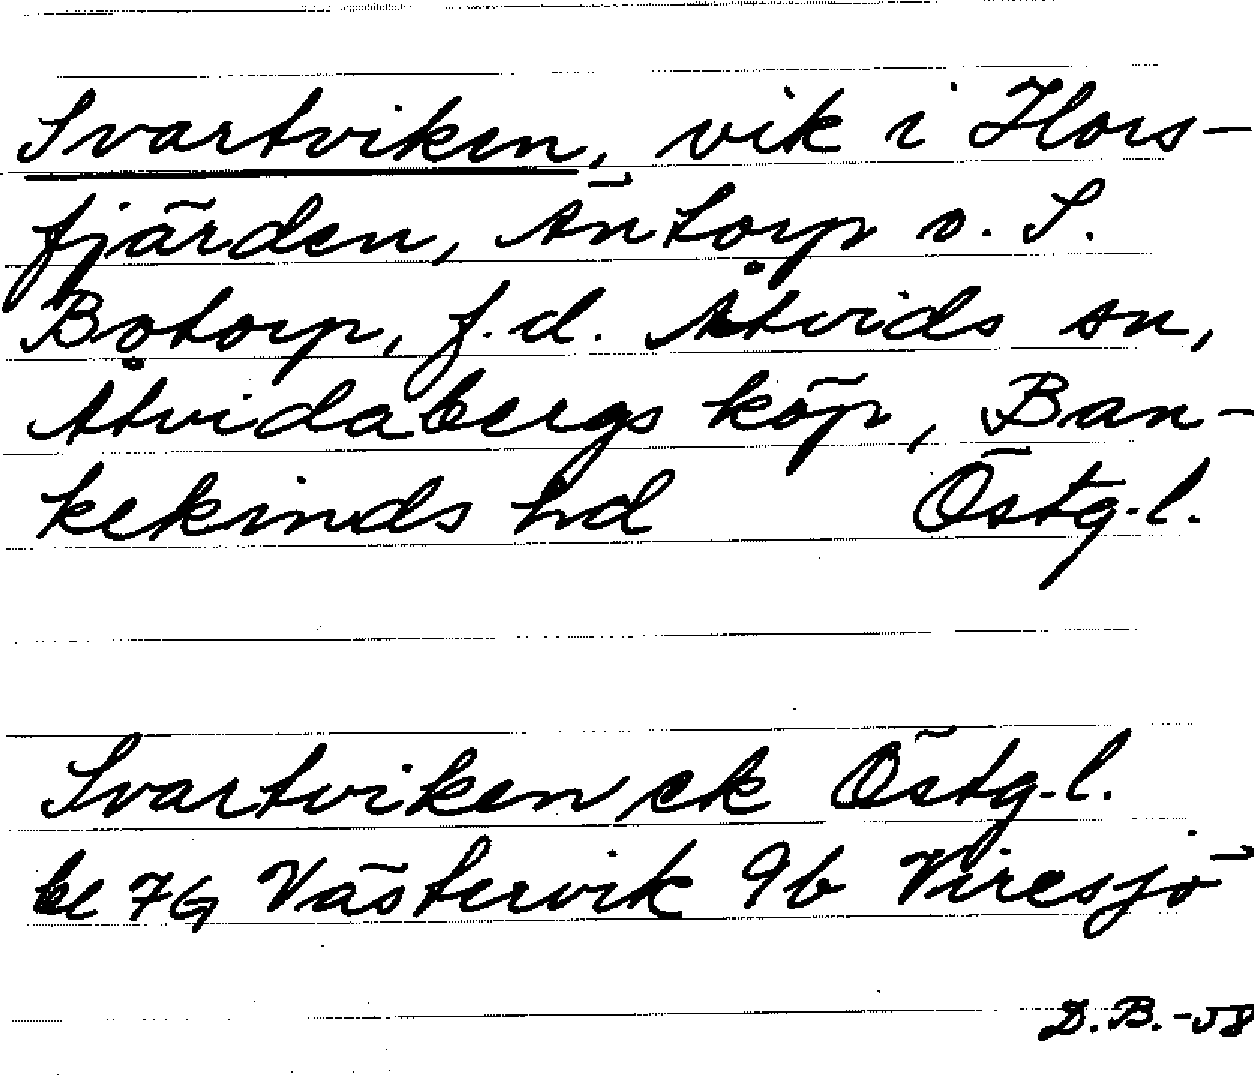 Svartviken, vik i Hors-
fjärden, Äntorp o. S.
Botorp, f.d. Åtvids sn,
Åtvidabergs köp, Ban-
kekinds hd Östg.l.
Svartviken ek Östg.l.
bl 7G Västervik 9b Viresjö
D.B.-58